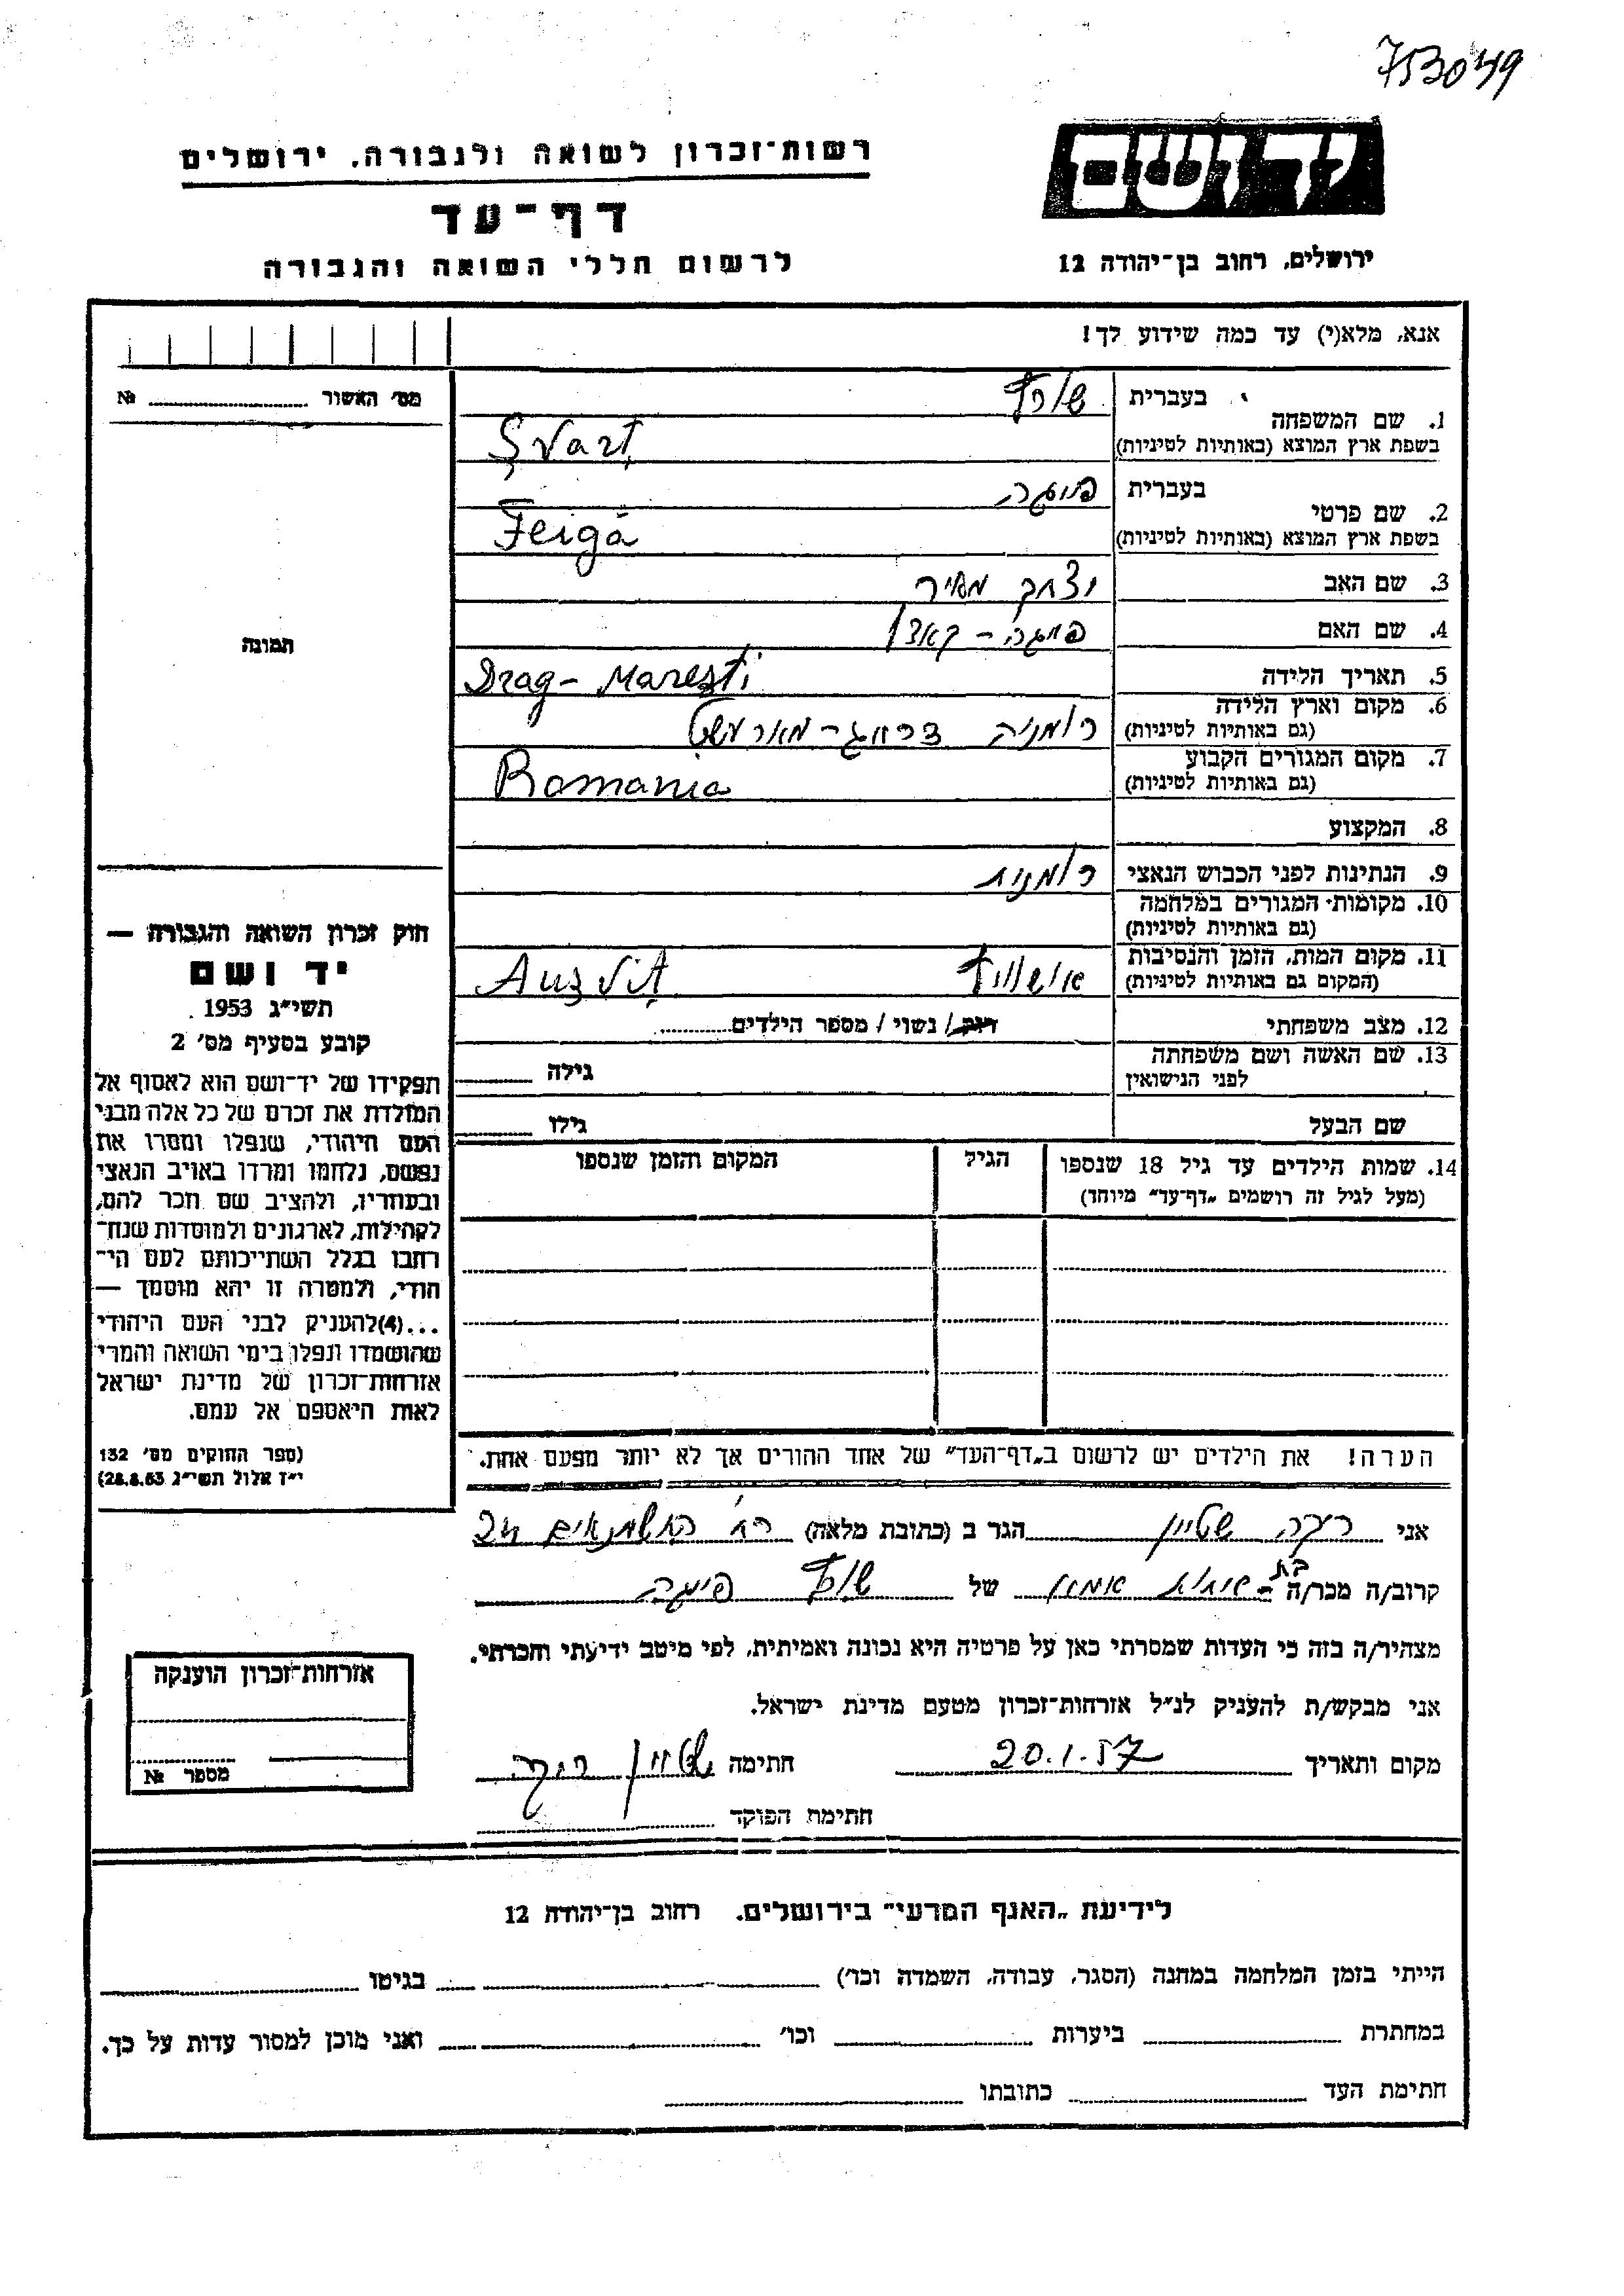 753049
רשות־זכרון לשואה ולגבורה, ירושלים
יד ושם
דף־עד
ירושלים, רחוב בן־יהודה 12
לרשום חללי השואה והגבורה
אנא, מלא(י) עד כמה שידוע לך!
מס' האשור № 
1. שם המשפחה
בעברית שורץ
בשפת ארץ המוצא (באותיות לטיניות) Şvarţ
2. שם פרטי
בעברית פייגה
בשפת ארץ המוצא (באותיות לטיניות) Feigă
3. שם האב יצחק מאיר
4. שם האם
תמונה
5. תאריך הלידה Drag-Mareşti
6. מקום וארץ הלידה
(גם באותיות לטיניות) רומניה
7. מקום המגורים הקבוע
(גם באותיות לטיניות) Romania
8. המקצוע
9. הנתינות לפני הכבוש הנאצי רומנית
10. מקומות המגורים במלחמה
(גם באותיות לטיניות)
11. מקום המות, הזמן והנסיבות
(המקום גם באותיות לטיניות) אושוויץ Auşviţ
12. מצב משפחתי רווק/ נשוי/ מספר הילדים
13. שם האשה ושם משפחתה
לפני הנישואין גילה
שם הבעל גילו
14. שמות הילדים עד גיל 18 שנספו הגיל המקום והזמן שנספו
(מעל לגיל זה רושמים „דף־עד" מיוחד)
חוק זכרון השואה והגבורה —
יד ושם
תשי"ג 1953
קובע בסעיף מס' 2
תפקידו של יד־ושם הוא לאסוף אל
המולדת את זכרם של כל אלה מבני
העם היהודי, שנפלו ומסרו את
נפשם, נלחמו ומרדו באויב הנאצי
ובעוזריו, ולהציב שם וזכר להם,
לקהילות, לארגונים ולמוסדות שנח־
רבו בגלל השתייכותם לעם הי־
הודי, ולמטרה זו יהא מוסמך —
...(4)להעניק לבני העם היהודי
שהושמדו ונפלו בימי השואה והמרי
אזרחות־זכרון של מדינת ישראל
לאות היאספם אל עמם.
(ספר החוקים מס' 132
י"ז אלול תשי"ג 28.8.53)
הערה! את הילדים יש לרשום ב„דף־העד" של אחד ההורים אך לא יותר מפעם אחת.
אני רבקה שטיין הגר ב (כתובת מלאה) רח' החשמונאים 24
קרוב/ה מכר/ה בת אחות של שורץ פייגה
מצהיר/ה בזה כי העדות שמסרתי כאן על פרטיה היא נכונה ואמיתית, לפי מיטב ידיעתי והכרתי.
אני מבקש/ת להעניק לנ"ל אזרחות־זכרון מטעם מדינת ישראל.
מקום ותאריך 20.1.57 חתימה שטיין רבקה
חתימת הפוקד
אזרחות־זכרון הוענקה
מספר №
לידיעת „האגף המדעי" בירושלים. רחוב בן־יהודה 12
הייתי בזמן המלחמה במחנה (הסגר, עבודה, השמדה וכו') בגיטו
במחתרת ביערות וכו' ואני מוכן למסור עדות על כך.
חתימת העד כתובתו